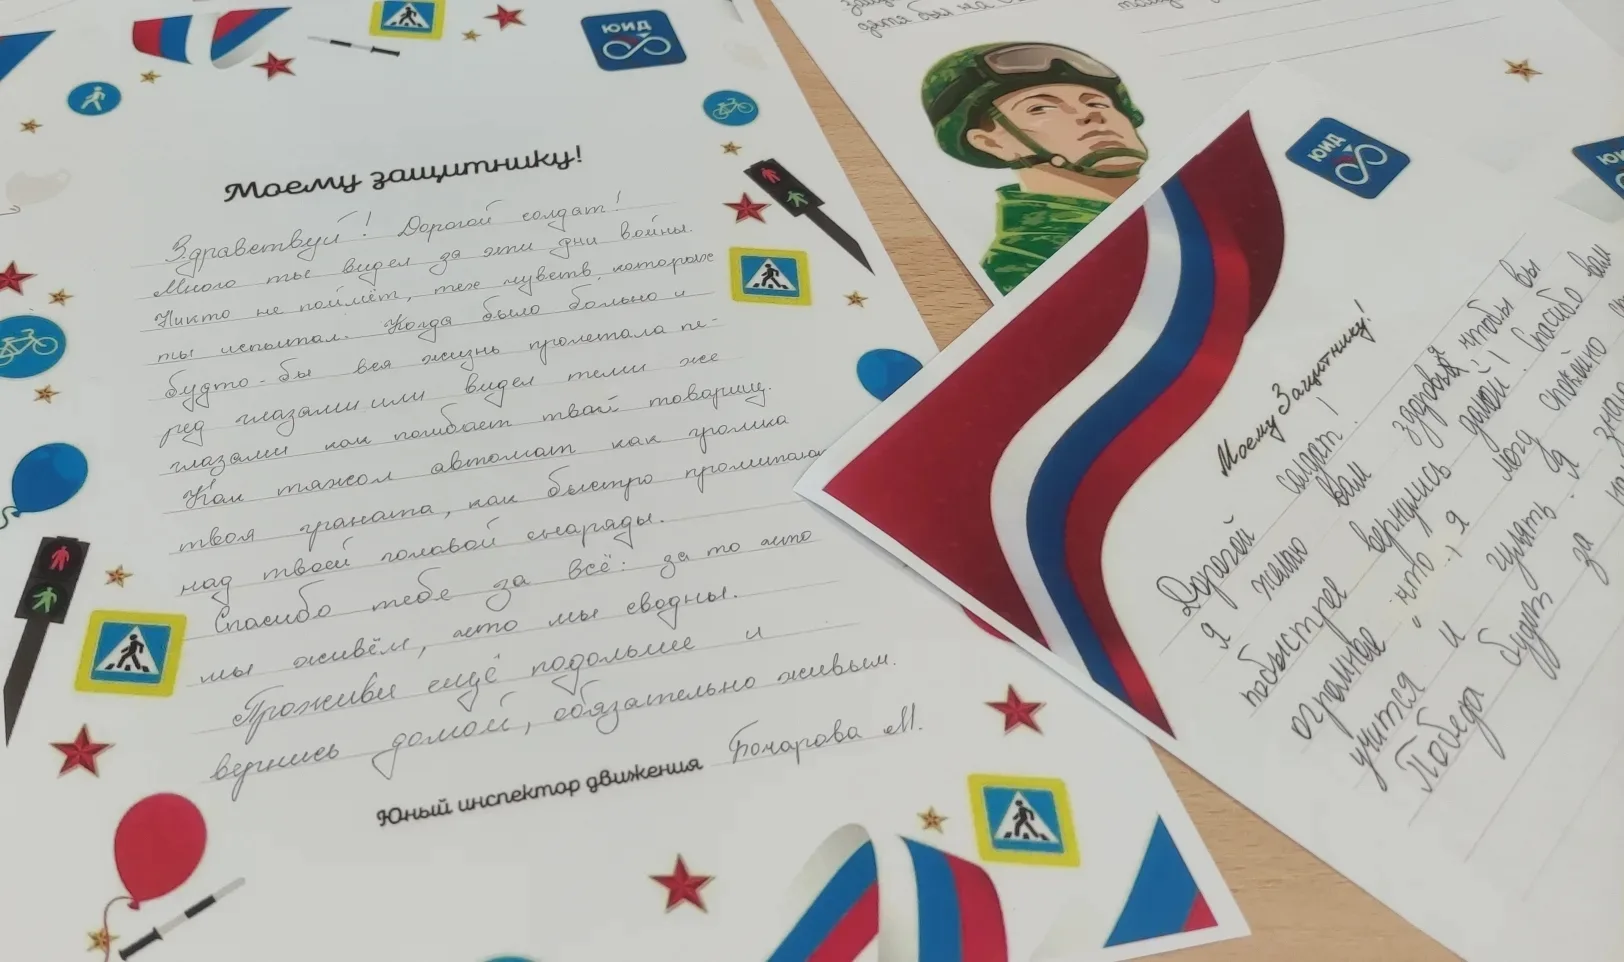 ЮИД
Моему защитнику!
Здравствуй! Дорогой солдат!
Много ты видел за эти дни войны.
Никто не поймёт, тех чувств, которые
ты испытал. Когда было больно и
будто-бы вся жизнь пролетала пе-
ред глазами или видел теми же
глазами как погибает твой товарищ.
Как тяжол автомат как громка
твоя граната, как быстро пролитала
над твоей головой снаряды.
Спасибо тебе за всё: за то что
мы живём, что мы сводны.
Проживи ещё подольше и
вернись домой, обязательно живым.
Юный инспектор движения Бочарова М.
дети бы на
ЮИД
Моему Защитнику!
Дорогой солдат!
Я желаю вам здоровья чтобы вы
побыстрее вернулись домой! Спасибо вам
огромное что я могу спокойно
учится и гулять. Я
Победа будет за
ЮИД